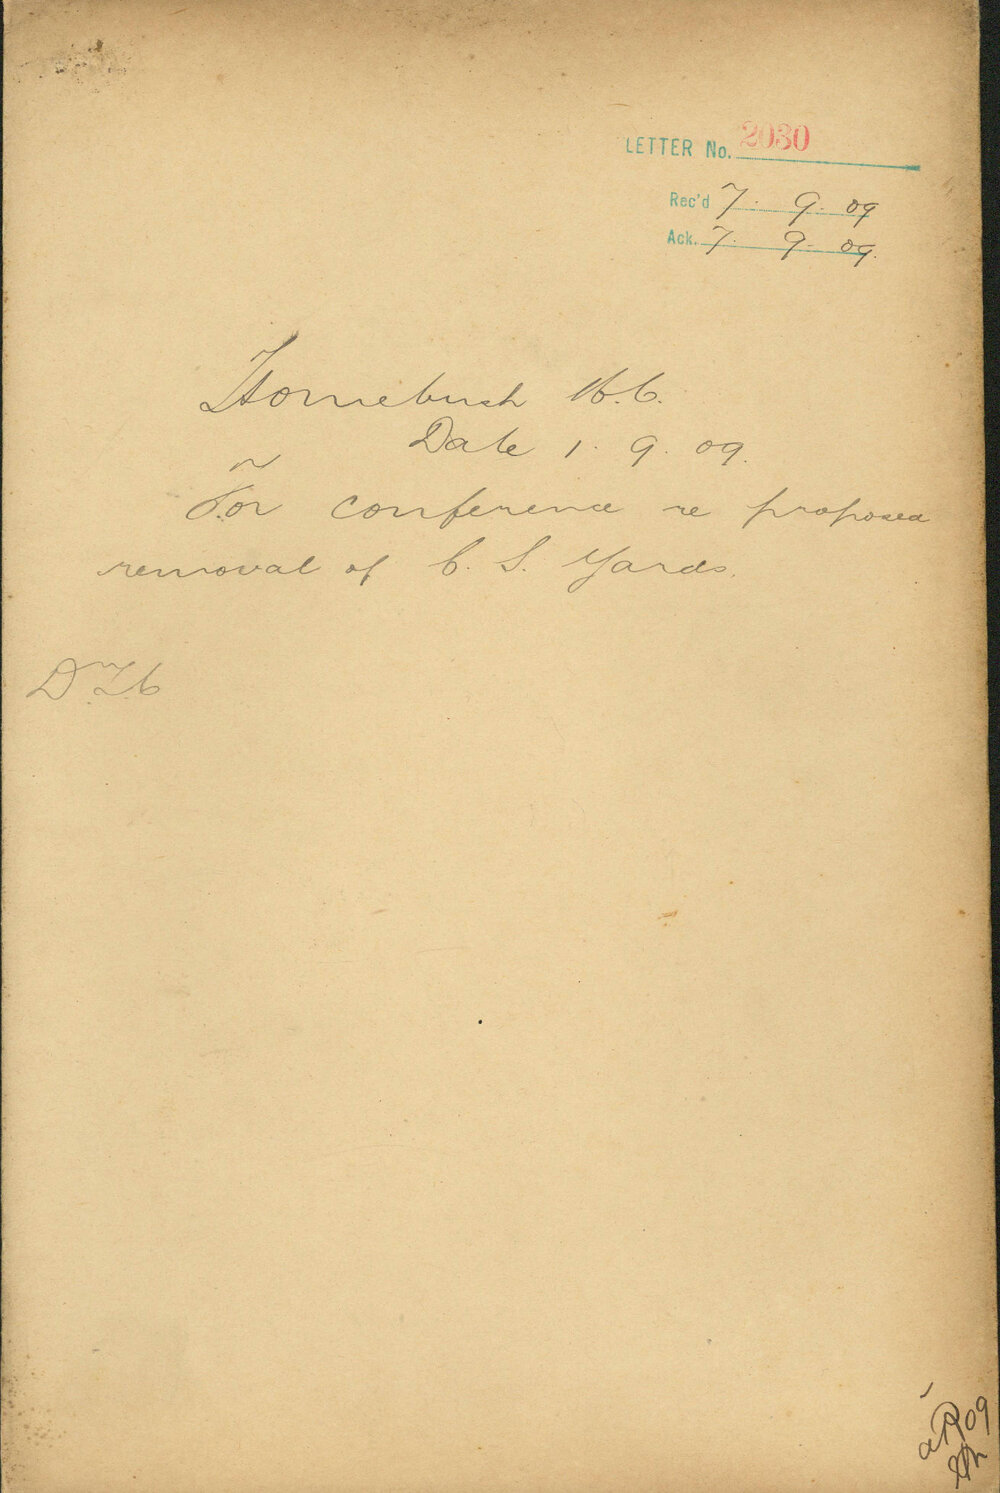 LETTER No. 2030
Rec'd 7. 9. 09
Ack. 7. 9. 09.
Homebush
Date 1. 9. 09.
For conference re proposed
removal of C. S. Yards.
09